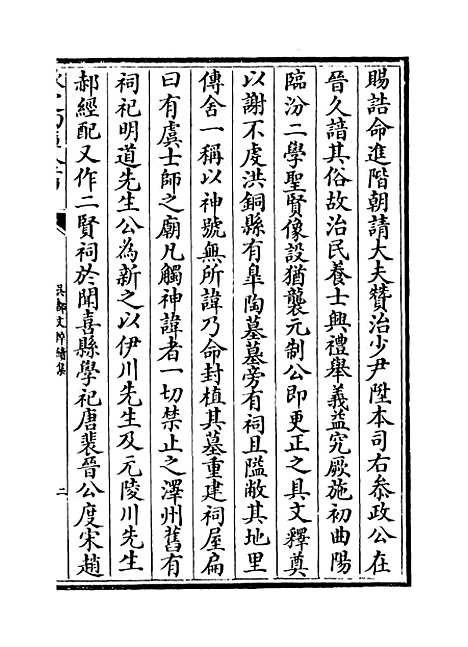 賜誥命進階朝請大夫贊治少尹陞本司右叅政公在
晉久諳其俗故治民養士興禮舉義益究厥施初曲陽
臨汾二學聖賢像設猶襲元制公即更正之具文釋奠
以謝不虔洪銅縣有臯陶墓墓旁有祠且隘敝其地里
傳舍一稱以神號無所諱乃命封植其墓重建祠屋扁
曰有虞士師之廟凡觸神諱者一切禁止之澤州舊有
祠祀明道先生公為新之以伊川先生及元陵川先生
郝經配又作二賢祠於聞喜縣學祀唐裴晉公度宋趙
吳都文粹續集
二